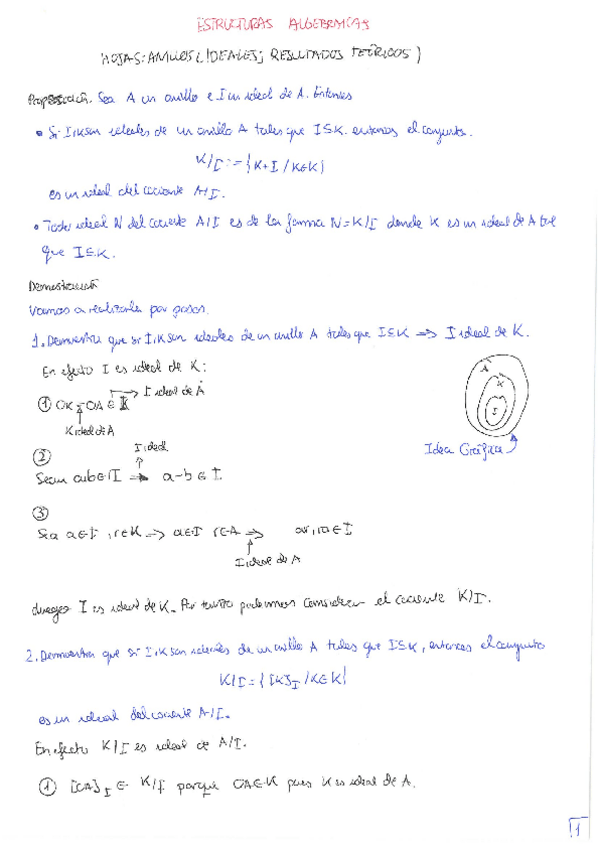 ESTRUCTURAS ALGEBRAICAS
HOJAS: ANILLOS (IDEALES; RESULTADOS TEÓRICOS)
Proposición. Sea A un anillo e I un ideal de A. Entonces
• Si I, K son ideales de un anillo A tales que I ⊆ K. entonces el conjunto.
K/I := {K+I / K∈K}
es un ideal del cociente A/I.
• Todo ideal N del cociente A/I es de la forma N = K/I donde K es un ideal de A tal
que I ⊆ K.
Demostración
Vamos a realizarla por pasos.
1. Demuestra que si I, K son ideales de un anillo A tales que I ⊆ K ⟹ I ideal de K.
En efecto I es ideal de K:
I ideal de A
① 0K = 0A ∈ I
K ideal de A
A
K
I
Idea Gráfica
I ideal
②
Sean a, b ∈ I ⟹ a-b ∈ I
③
Sea a ∈ I, r ∈ K ⟹ a ∈ I r ∈ A ⟹ ar, ra ∈ I
I ideal de A
Luego I es ideal de K. Por tanto podemos considerar el cociente K/I.
2. Demuestra que si I, K son ideales de un anillo A tales que I ⊆ K, entonces el conjunto
K/I = {[K]_I / K∈K}
es un ideal del cociente A/I.
En efecto K/I es ideal de A/I.
① [0A]_I ∈ K/I porque 0A ∈ K pues K es ideal de A.
1